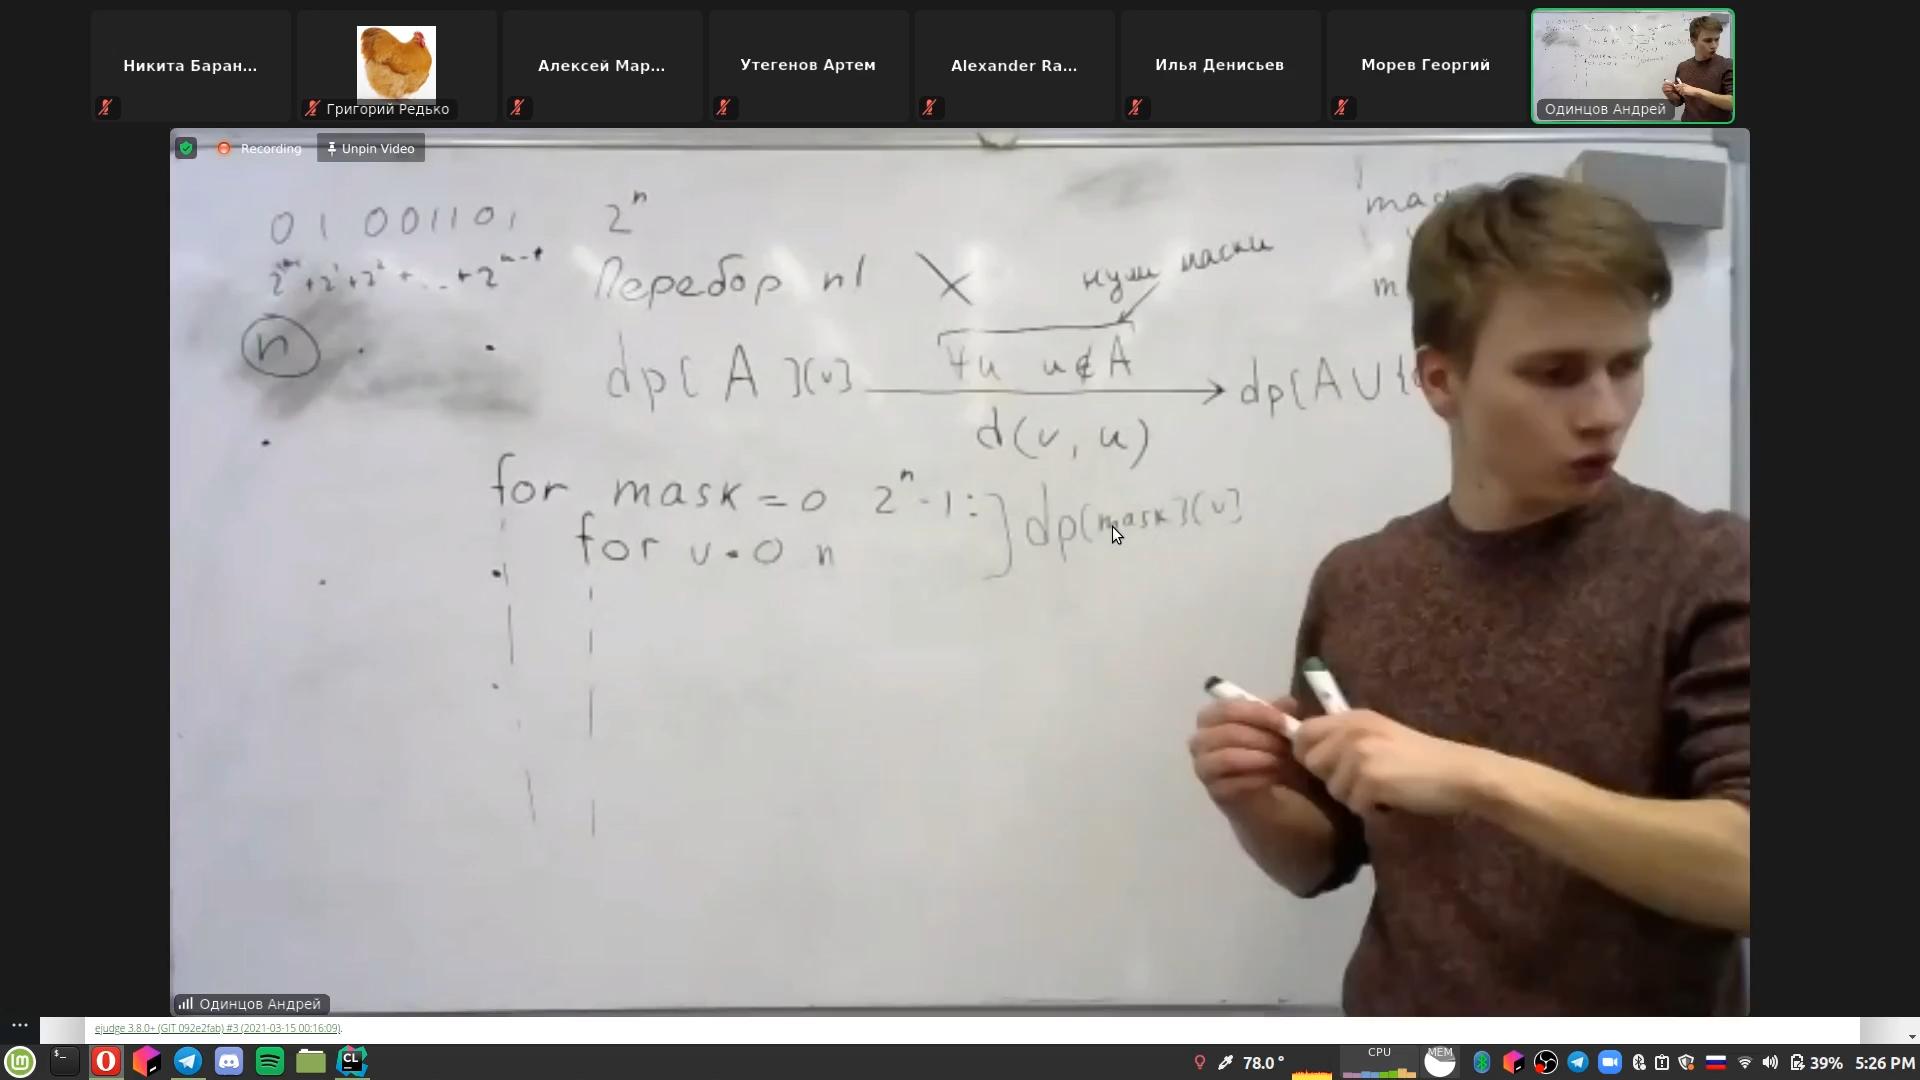 Никита Баран...
Григорий Редько
Алексей Мар...
Утегенов Артем
Alexander Ra...
Илья Денисьев
Морев Георгий
Одинцов Андрей
Recording
Unpin Video
0 1 001101 2^n
Перебор n!
нули маски
n
dp[A][v] ∀u u∉A dp[A∪{
d(v, u)
for mask = 0 2^n - 1: dp[mask][v]
for v = 0 n
Одинцов Андрей
ejudge 3.8.0+ (GIT 092e2fab) #3 (2021-03-15 00:16:09).
78.0° CPU MEM 39% 5:26 PM